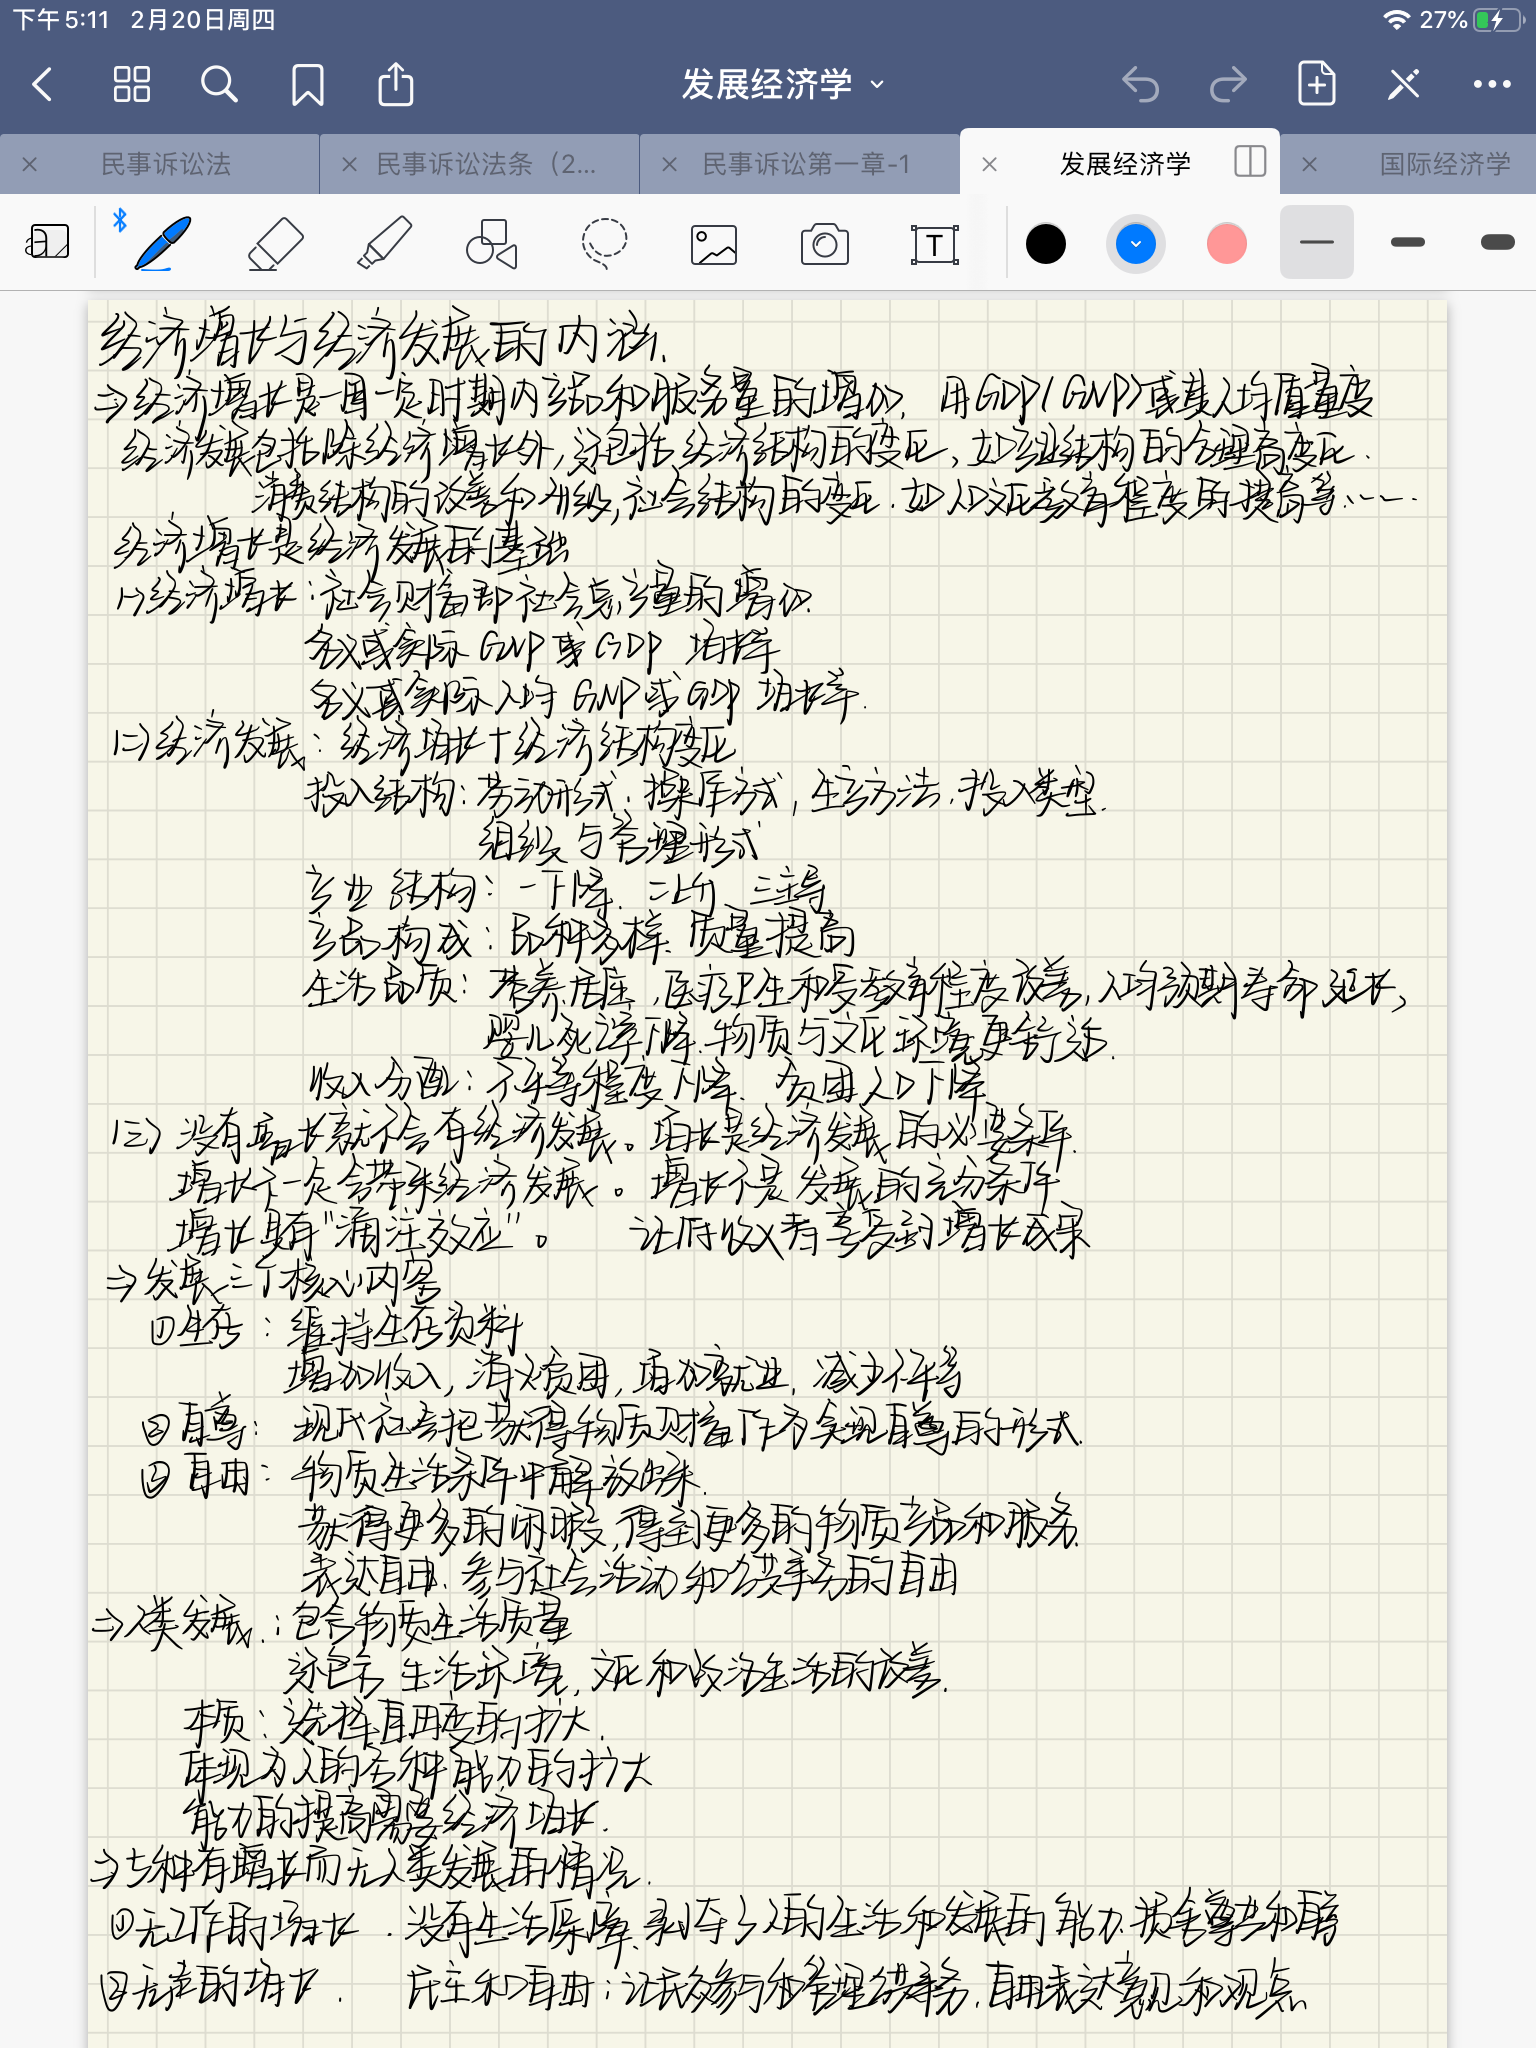 下午5:11 2月20日周四 27%
发展经济学
民事诉讼法 民事诉讼法条（2... 民事诉讼第一章-1 发展经济学 国际经济学
经济增长与经济发展的内涵.
⇒经济增长是一国一定时期内产品和服务量的增加. 用GDP(GNP)或其人均质量度
经济发展包括除经济增长外,还包括经济结构的变化、如产业结构的合理高度化.
消费结构的改善和升级,社会结构的变化.如人口文化教育程度的提高等……
经济增长是经济发展的基础
(一)经济增长:社会财富即社会总产量的增加.
名义或实际 GNP或GDP 增长率
名义或实际人均 GNP或GDP 增长率.
(二)经济发展:经济增长+经济结构变化
投入结构:劳动形式. 操作方式,生产方法.投入类型.
组织与管理形式
产业结构:一下降. 二上升、三主导
产品构成:品种多样. 质量提高
生活品质:营养.居住,医疗卫生和受教育程度改善,人均预期寿命延长,
婴儿死亡率下降.物质与文化环境更舒适.
收入分配:不平等程度下降. 贫困人口下降
(三) 没有增长就不会有经济发展。增长是经济发展的必要条件.
增长不一定会带来经济发展。增长不是发展的充分条件
增长具有"滴注效应"。 让低收入者享受到增长成果
⇒发展三个核心内容
①生存:维持生存资料
增加收入,消灭贫困,增加就业,减少不平等
②自尊:现代社会把获得物质财富作为实现自尊的形式.
③自由:物质生活条件中解放出来.
获得更多的闲暇,得到更多的物质产品和服务.
表达自由.参与社会活动和公共事务的自由
⇒人类发展.:包含物质生活质量
还包含生活环境,文化和政治生活的改善.
本质:选择自由度的扩大.
体现为人的各种能力的扩大
能力的提高需要经济增长.
⇒5种有增长而无人类发展的情况.
①无工作的增长.没有生活保障.剥夺了人的生活和发展的能力.损害尊严和自尊
②无声的增长. 民主和自由;让民众参与和管理公共事务.自由表达意见和观点